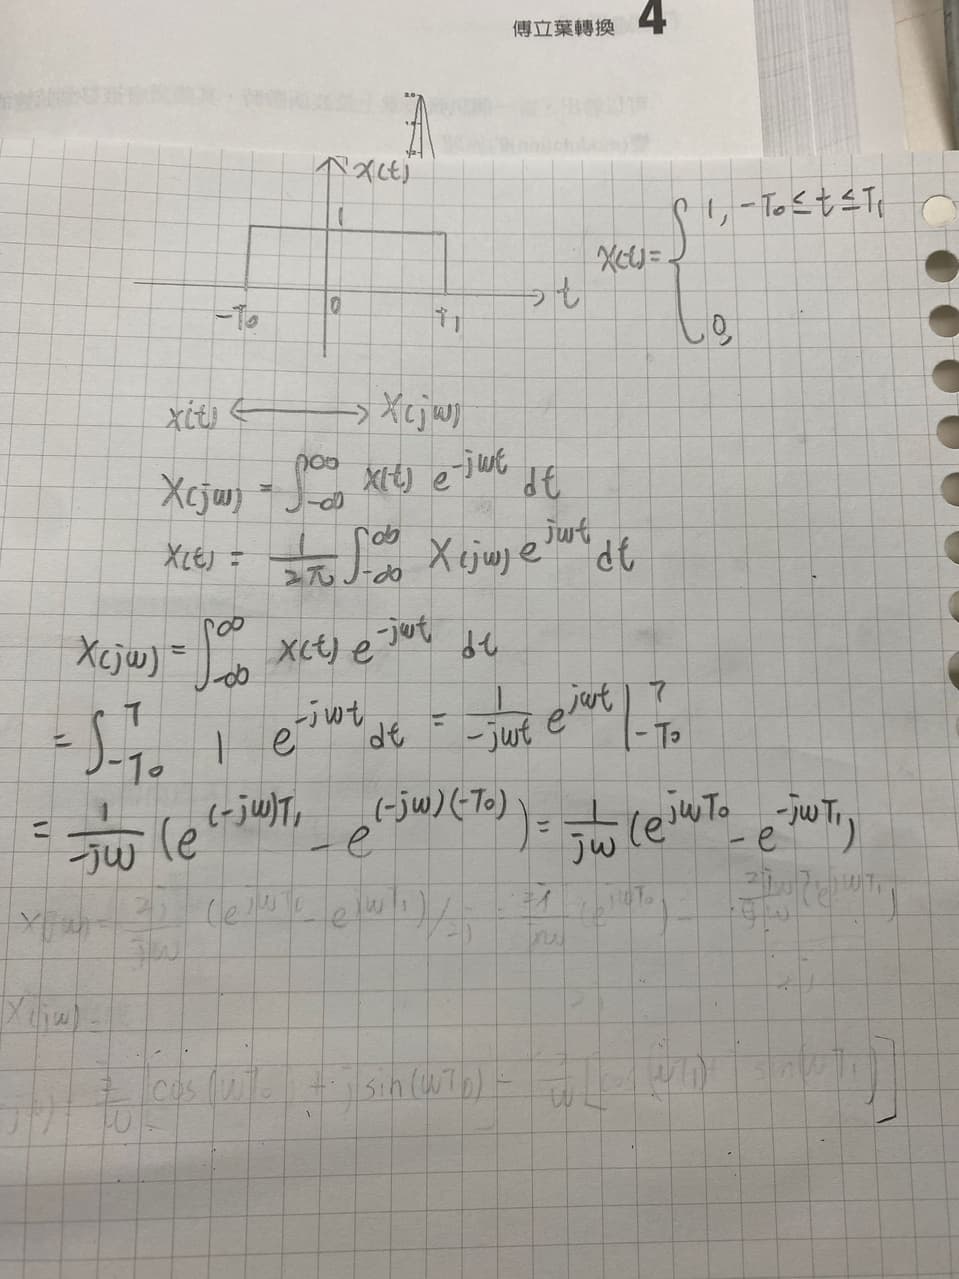 傅立葉轉換 4
2.0
x(t)
1
-T₀ 0 T₁ t
x(t) = { 1, -T₀ ≤ t ≤ T₁
0,
x(t) ⟷ X(jω)
X(jω) = ∫_{-∞}^{∞} x(t) e^{-jωt} dt
x(t) = 1/2π ∫_{-∞}^{∞} X(jω) e^{jωt} dt
X(jω) = ∫_{-∞}^{∞} x(t) e^{-jωt} dt
= ∫_{-T₀}^{T} 1 e^{-jωt} dt = 1/-jωt e^{jωt} |_{-T₀}^{T}
= 1/-jω (e^{(-jω)T₁} - e^{(-jω)(-T₀)}) = 1/jω (e^{jωT₀} - e^{-jωT₁})
X(jω) =
cos(ωT₀) + j sin(ωT₀) -